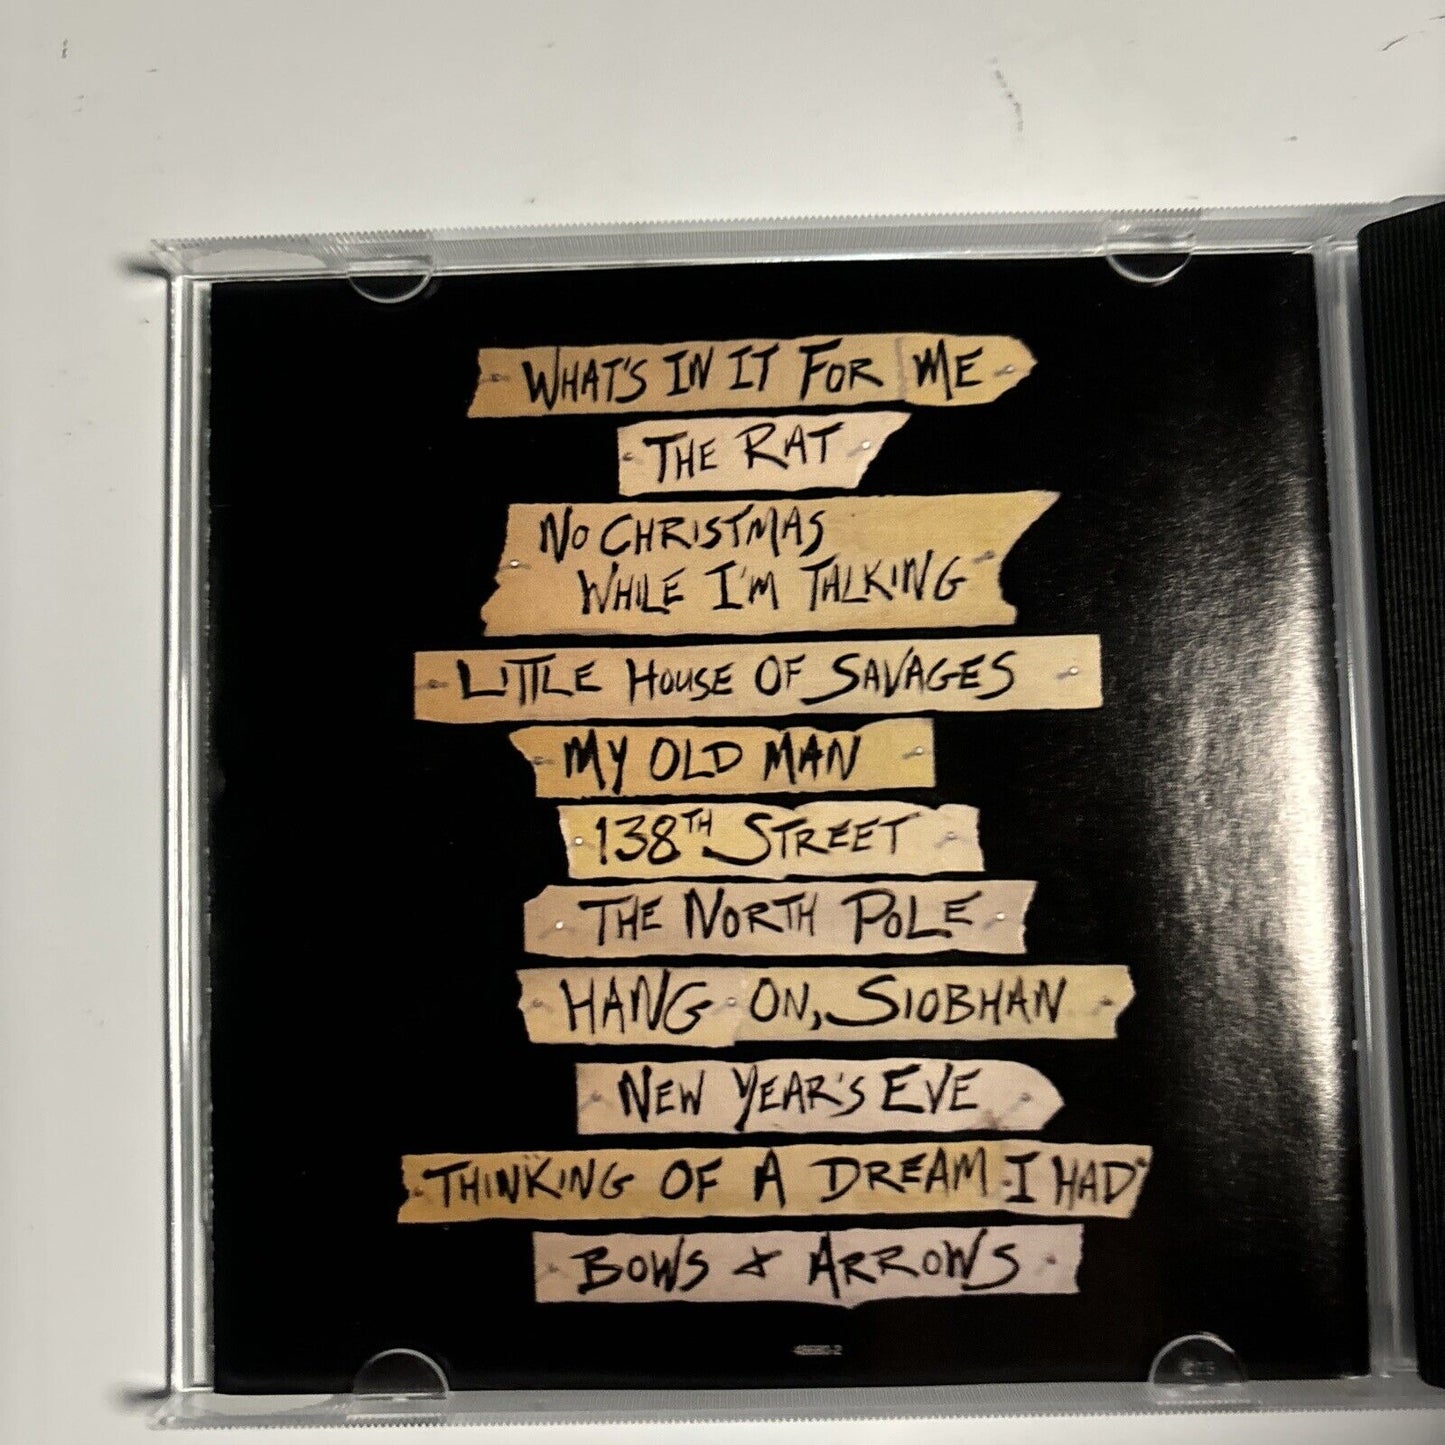 WHAT'S IN IT FOR ME
THE RAT
NO CHRISTMAS
WHILE I'M TALKING
LITTLE HOUSE OF SAVAGES
MY OLD MAN
138TH STREET
THE NORTH POLE
HANG ON, SIOBHAN
NEW YEAR'S EVE
THINKING OF A DREAM I HAD
BOWS & ARROWS
48680-2